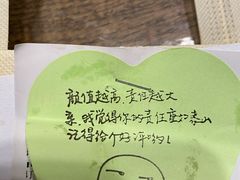 颜值越高,责任越大
亲,我觉得你的责任重如泰山
记得给个好评哟!